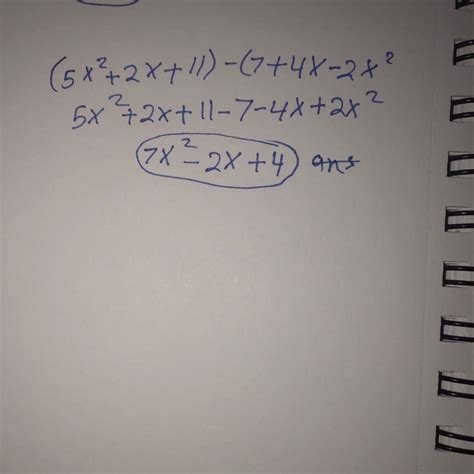 (5x²+2x+11)-(7+4x-2x²
5x²+2x+11-7-4x+2x²
7x²-2x+4 ans